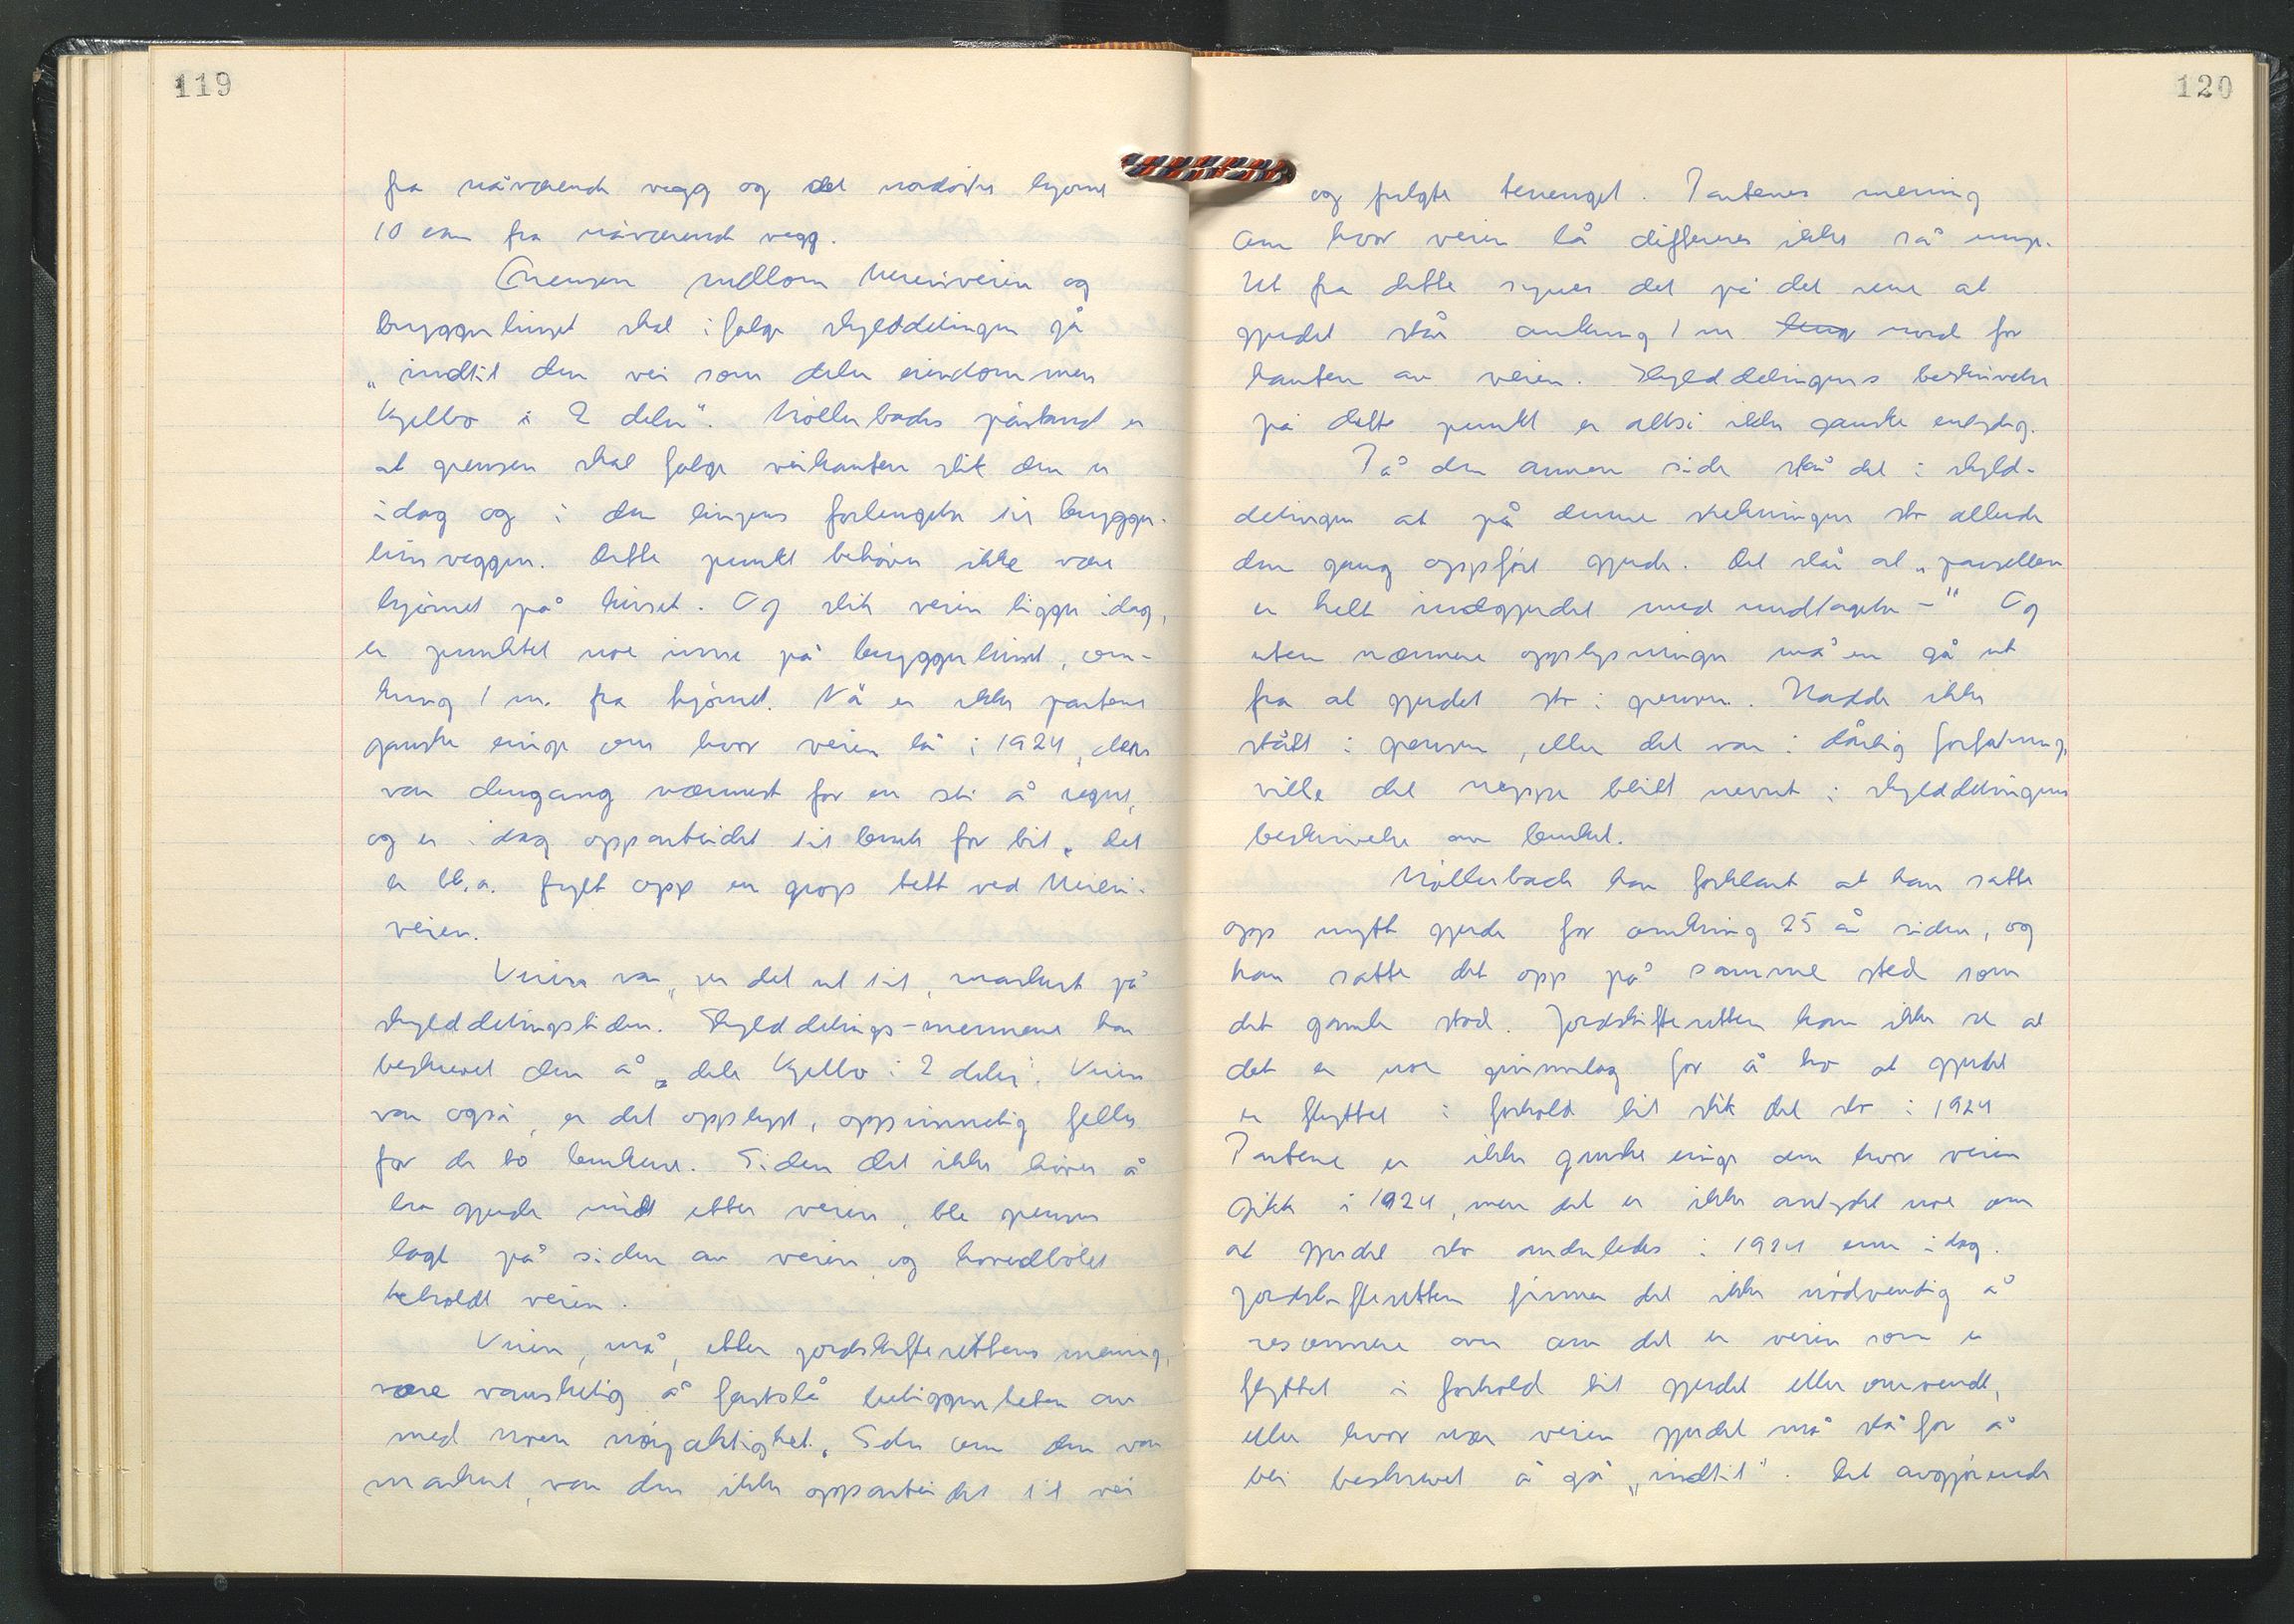 119
fra nåværende vegg og det nordøstre hjørne
10 cm fra nåværende vegg.
Grensen mellom Mereiveien og
bryggerhuset skal ifølge skylddelingen gå
„indtil den vei som deler eiendommen
Kjelbo i 2 deler". Möllerbacks påstand er
at grensen skal følge veikanten slik den er
idag og i den linjens forlengelse til brygger-
husveggen. Dette punkt behøver ikke være
hjørnet på huset. Og slik veien ligger idag,
er punktet noe inne på bryggerhuset, om-
kring 1 m. fra hjørnet. Nå er ikke partene
ganske enige om hvor veien lå i 1924, den
var dengang nærmest for en sti å regne,
og er idag opparbeidet til bruk for bil. Det
er bl.a. fylt opp en grop tett ved Mereivei-
veien.
Veien var, ser det ut til, markert på
skylddelingstiden. Skylddelings-mennene har
beskrevet den å „dele Kjelbo i 2 deler". Veien
var også, er det opplyst, opprinnelig felles
for de to brukene. Siden det ikke hører å
ha gjerde midt etter veien, ble grensen
lagt på siden av veien og hovedbølet
beholdt veien.
Veien, må, etter jordskifterettens mening,
være vanskelig å fastslå beliggenheten av
med noen nøyaktighet. Selv om den var
markert, var den ikke opparbeidet til vei
120
og fulgte terrenget. Partenes mening
om hvor veien lå differerer ikke så mye.
Ut fra dette synes det på det rene at
gjerdet står omkring 1 m nord for
kanten av veien. Skylddelingens beskrivelse
på dette punkt er altså ikke ganske entydig.
På den annen side står det i skyld-
delingen at på denne strekningen sto allerede
den gang oppført gjerde. Det står at „parsellen
er helt indgjerdet med undtagelse –" Og
uten nærmere opplysninger må en gå ut
fra at gjerdet sto i grensen. Hadde ikke
stått i grensen, eller det var i dårlig forfatning,
ville det neppe blitt nevnt i skylddelingens
beskrivelse av bruket.
Möllerback har forklart at han satte
opp nytt gjerde for omkring 25 år siden, og
han satte det opp på samme sted som
det gamle stod. Jordskifteretten kan ikke se at
det er noe grunnlag for å tro at gjerdet
er flyttet i forhold til slik det sto i 1924
Partene er ikke ganske enige om hvor veien
gikk i 1924, men det er ikke antydet noe om
at gjerdet sto anderledes i 1924 enn idag.
Jordskifteretten finner det ikke nødvendig å
resonnere over om det er veien som er
flyttet i forhold til gjerdet eller omvendt,
eller hvor nær veien gjerdet må stå for å
bli beskrevet å gå „indtil". Det avgjørende